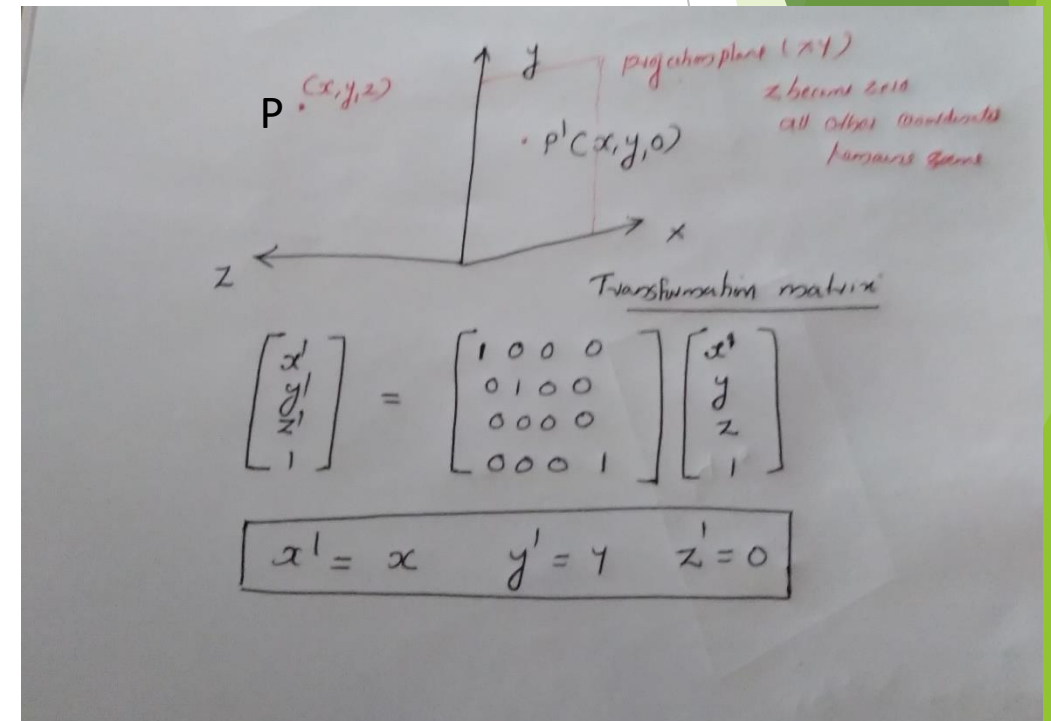 y
projection plane (xy)
P (x,y,z)
z becums zero
all other coordinates
P'(x,y,0)
remains same
x
z
Transformation matrix
[x' y' z' 1] = [1 0 0 0
0 1 0 0
0 0 0 0
0 0 0 1] [x' y z 1]
x' = x y' = y z' = 0